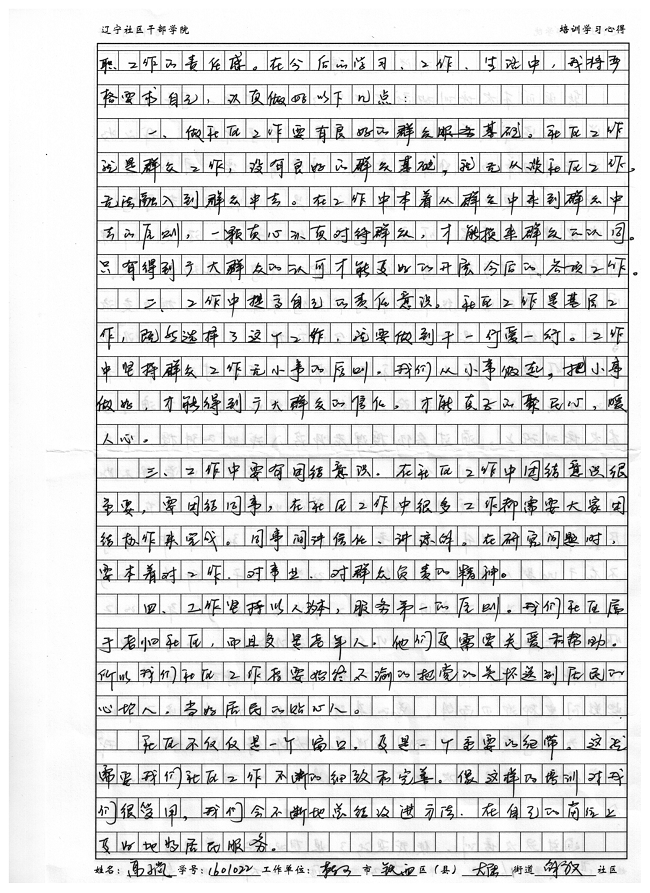 辽宁社区干部学院 培训学习心得
职工作的责任感。在今后的学习、工作、生活中,我将严
格要求自己,认真做好以下几点:
一、做社区工作要有良好的群众基础。社区工作
就是群众工作,没有良好的群众基础,就无从谈社区工作。
无法融入到群众中去。在工作中本着从群众中来到群众中
去的原则,一颗真心认真对待群众,才能换来群众的认同。
只有得到广大群众的认可才能更好的开展今后的各项工作。
二、工作中提高自己的责任意识。社区工作是基层工
作,既然选择了这个工作,就要做到干一行爱一行。工作
中坚持群众工作无小事的原则。我们从小事做起,把小事
做好,才能得到广大群众的信任。才能真正的聚民心,暖
人心。
三、工作中要有团结意识。在社区工作中团结意识很
重要,要团结同事,在社区工作中很多工作都需要大家团
结协作来完成。同事间讲信任、讲谅解。在研究问题时,
要本着对工作、对事业、对群众负责的精神。
四、工作坚持以人为本,服务第一的原则。我们社区属
于老旧社区,而且多是老年人。他们更需要关爱和帮助。
所以我们社区工作者要始终不渝的把党的关怀送到居民的
心坎人。当好居民的贴心人。
社区不仅仅是一个窗口,更是一个重要的纽带。这就
需要我们社区工作不断的细致和完善。像这样的培训对我
们很管用,我们会不断地总结改进方法,在自己的岗位上
更好地为居民服务。
姓名: 学号:1601022 工作单位: 市 铁西 区(县) 街道 社区